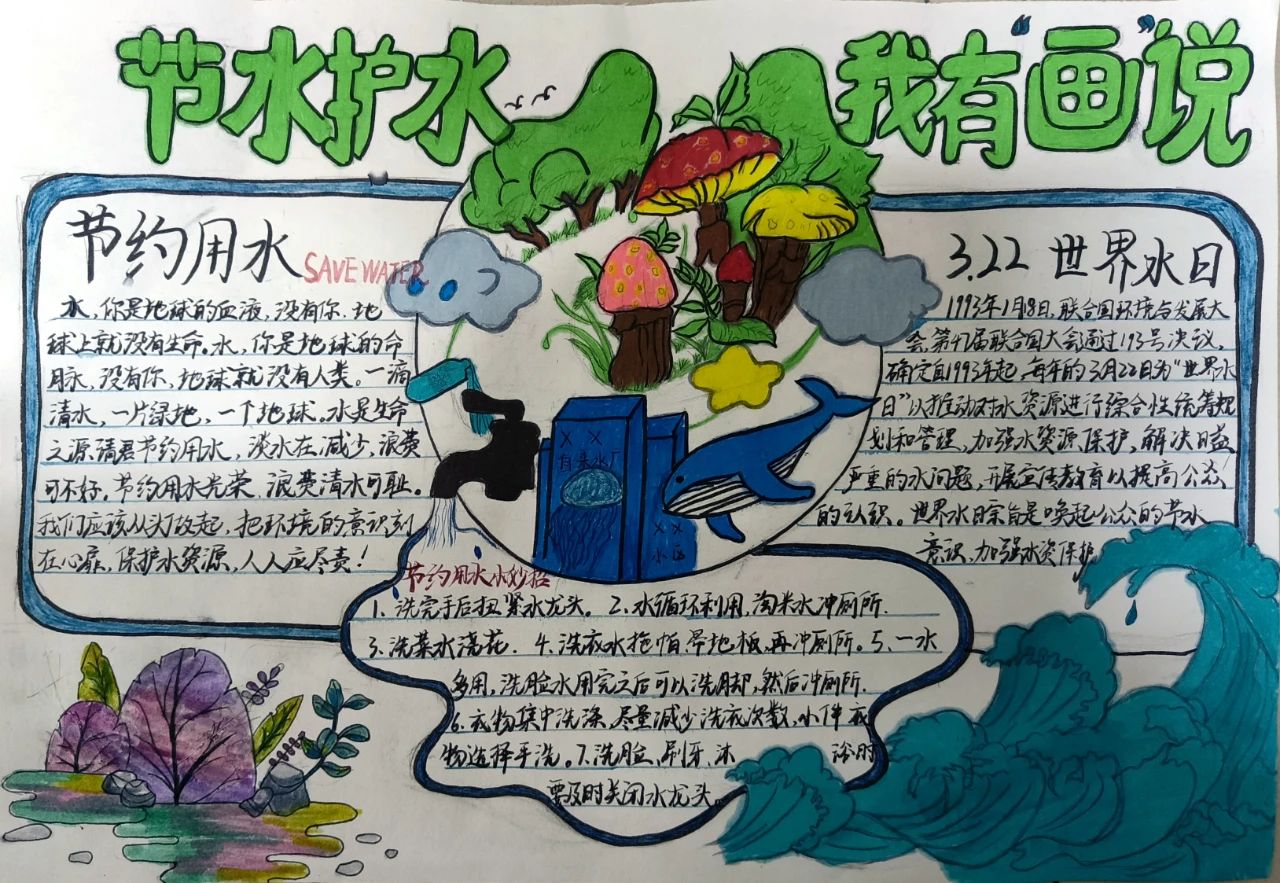 节水护水
我有“画”说
节约用水
SAVE WATER
水，你是地球的血液，没有你，地
球上就没有生命。水，你是地球的命
脉，没有你，地球就没有人类。一滴
清水，一片绿地，一个地球。水是生命
之源请君节约用水，淡水在减少，浪费
可不好。节约用水光荣，浪费清水可耻。
我们应该从头做起，把环境的意识刻
在心扉，保护水资源，人人应尽责！
3.22 世界水日
1993年1月18日，联合国环境与发展大
会，第47届联合国大会通过193号决议，
确定自1993年起，每年的3月22日为“世界水
日”以推动对水资源进行综合性统筹规
划和管理，加强水资源保护，解决日益
严重的水问题，开展宣传教育以提高公众
的认识。世界水日宗旨是唤起公众的节水
意识，加强水资保护
自来水厂
小区
节约用水小妙招
1、洗完手后扭紧水龙头。2、水循环利用，淘米水冲厕所.
3、洗菜水浇花. 4、洗衣水拖帕旱地板，再冲厕所。5、一水
多用，洗脸水用完之后可以洗脚，然后冲厕所.
6、衣物集中洗涤，尽量减少洗衣次数，小件衣
物选择手洗。7、洗脸、刷牙、沐浴时
要及时关闭水龙头。